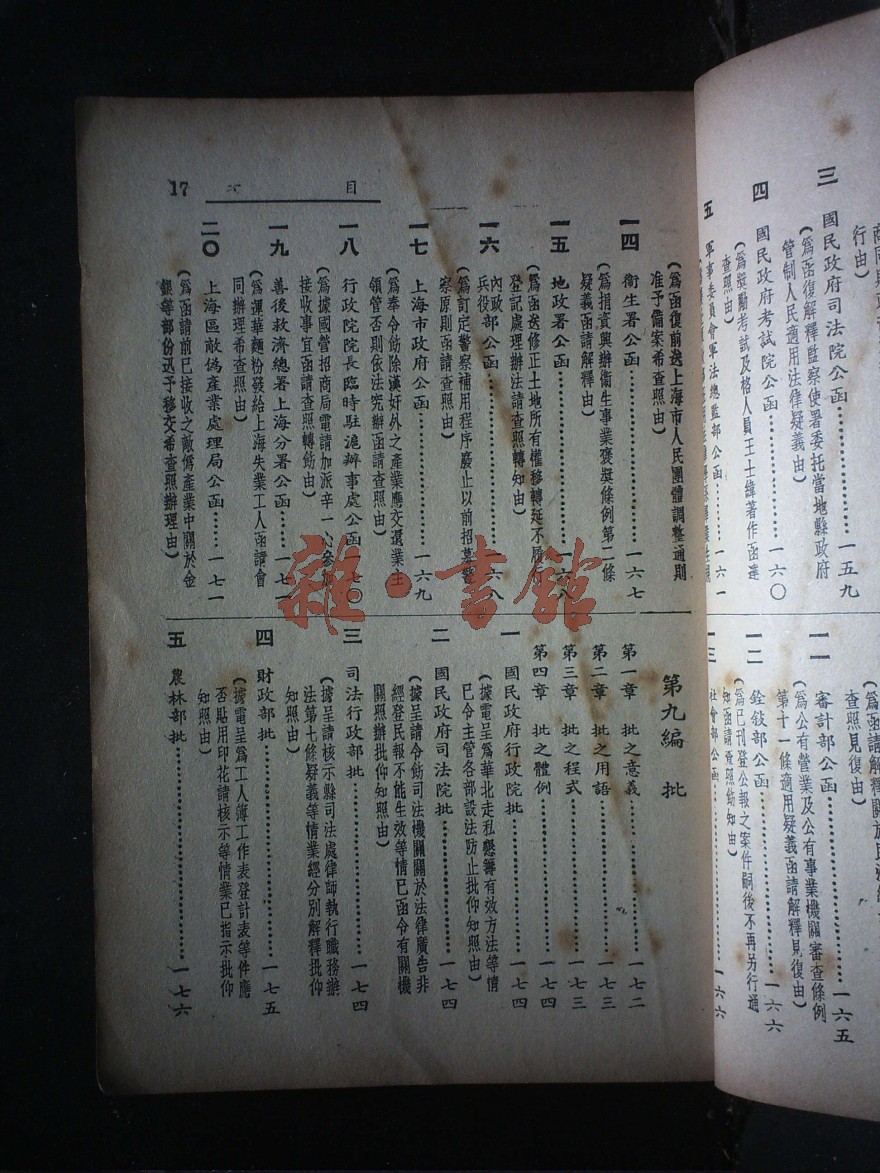 三　國民政府司法院公函……一五九
（爲函復解釋監察使署委托當地縣政府
管制人民適用法律疑義由）
四　國民政府考試院公函……一六〇
（爲獎勵考試及格人員王士緯著作函達
查照由）
五　軍事委員會軍法總監部公函……一六一
查照見復由）
一一　審計部公函……一六五
（爲公有營業及公有事業機關審查條例
第十一條適用疑義函請解釋見復由）
一二　銓敍部公函……一六六
（爲已刊登公報之案件嗣後不再另行通
知函請查照飭知由）
一三　社會部公函……一六六
目　次　17
（爲函復前送上海市人民團體調整通則
准予備案希查照由）
一四　衞生署公函……一六七
（爲捐資興辦衞生事業褒獎條例第二條
疑義函請解釋由）
一五　地政署公函……一六八
（爲函送修正土地所有權移轉延不履行
登記處理辦法請查照轉知由）
一六　內政部兵役公函……一六八
（爲訂定警察補用程序廢止以前招募警
察原則函請查照由）
一七　上海市政府公函……一六九
（爲奉令飭除漢奸外之產業應交還業主
領管否則依法究辦函請查照由）
一八　行政院院長臨時駐滬辦事處公函……一七〇
（爲據國營招商局電請加派辛一心參加
接收事宜函請查照轉飭由）
一九　善後救濟總署上海分署公函……一七一
（爲運華麵粉發給上海失業工人函請會
同辦理希查照由）
二〇　上海區敵偽產業處理局公函……一七一
（爲函請前已接收之敵僞產業中關於金
銀等部份迅予移交希查照辦理由）
第九編　批
第一章　批之意義……一七二
第二章　批之用語……一七三
第三章　批之程式……一七三
第四章　批之體例……一七四
一　國民政府行政院批……一七四
（據電呈爲華北走私懇籌有效方法等情
已令主管各部設法防止批仰知照由）
二　國民政府司法院批……一七四
（據呈請令飭司法機關關於法律廣告非
經登民報不能生效等情已函令有關機
關照辦批仰知照由）
三　司法行政部批……一七四
（據呈請核示縣司法處律師執行職務辦
法第七條疑義等情業經分別解釋批仰
知照由）
四　財政部批……一七五
（據電呈爲工人簿工作表登計表等件應
否貼用印花請核示等情業已指示批仰
知照由）
五　農林部批……一七六
雜·書館